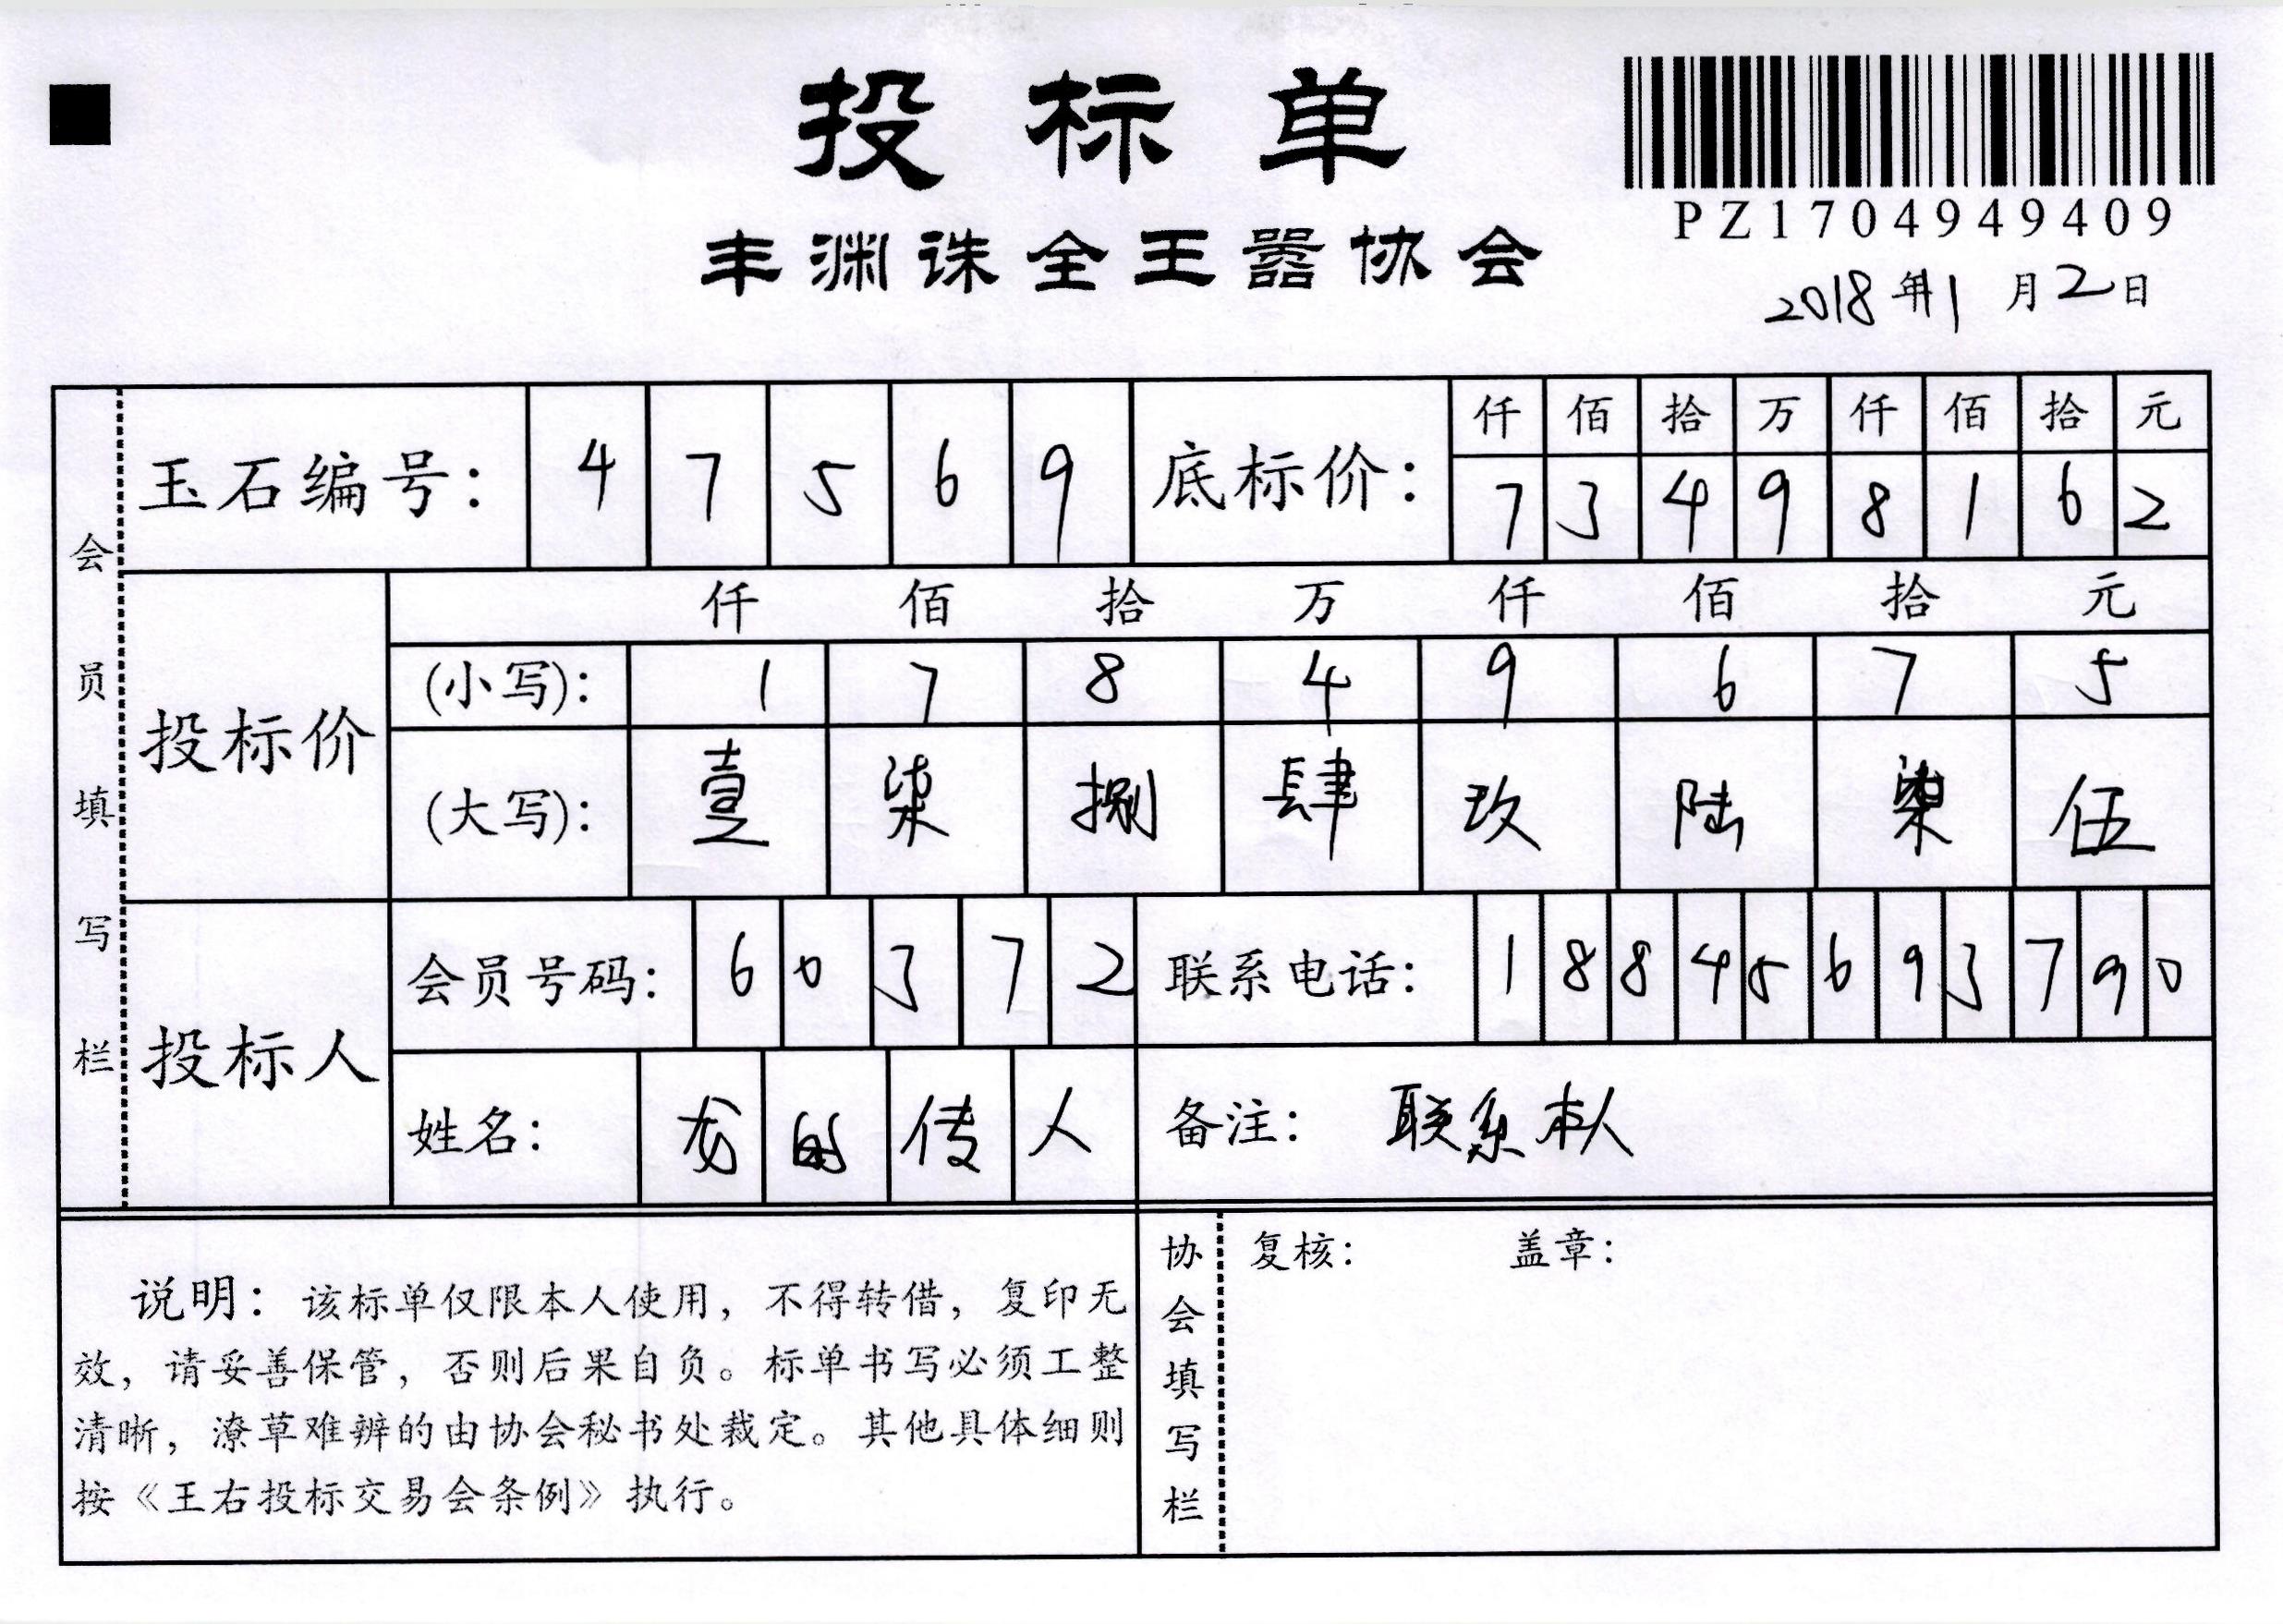 投标单
PZ1704949409
丰渊诛全王嚣协会
2018年1月2日
会员填写栏
玉石编号: 4 7 5 6 9
底标价: 仟 佰 拾 万 仟 佰 拾 元
7 3 4 9 8 1 6 2
投标价
仟 佰 拾 万 仟 佰 拾 元
(小写): 1 7 8 4 9 6 7 5
(大写): 壹 柒 捌 肆 玖 陆 柒 伍
投标人
会员号码: 6 0 3 7 2
联系电话: 1 8 8 4 5 6 9 3 7 9 0
姓名: 龙 的 传 人
备注: 联系本人
说明: 该标单仅限本人使用, 不得转借, 复印无
效, 请妥善保管, 否则后果自负。标单书写必须工整
清晰, 潦草难辨的由协会秘书处裁定。其他具体细则
按《王右投标交易会条例》执行。
协会填写栏
复核: 盖章: